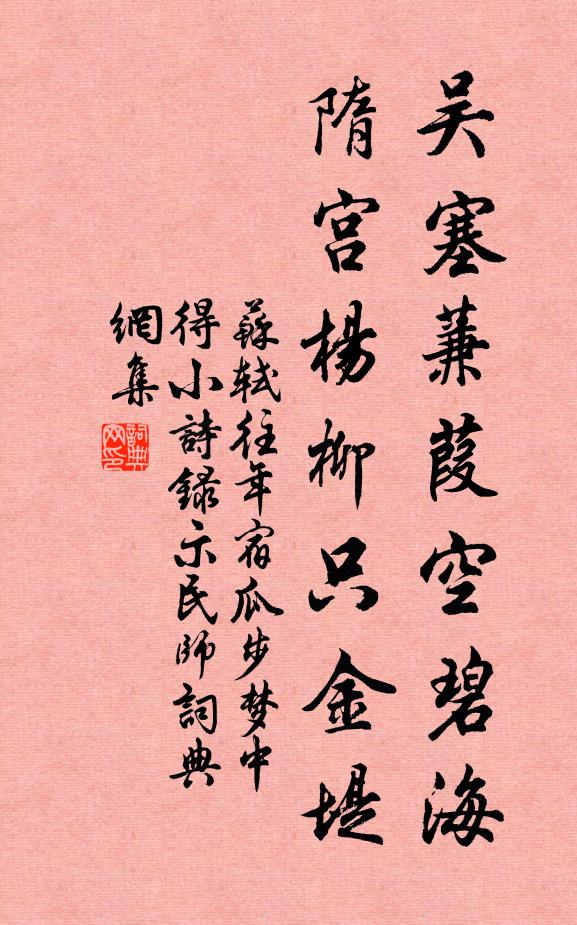 吴塞蒹葭空碧海
隋宫楊柳只金堤
蘇軾往年宿瓜步梦中
得小詩録示民師詞典
網集
詞典
网印